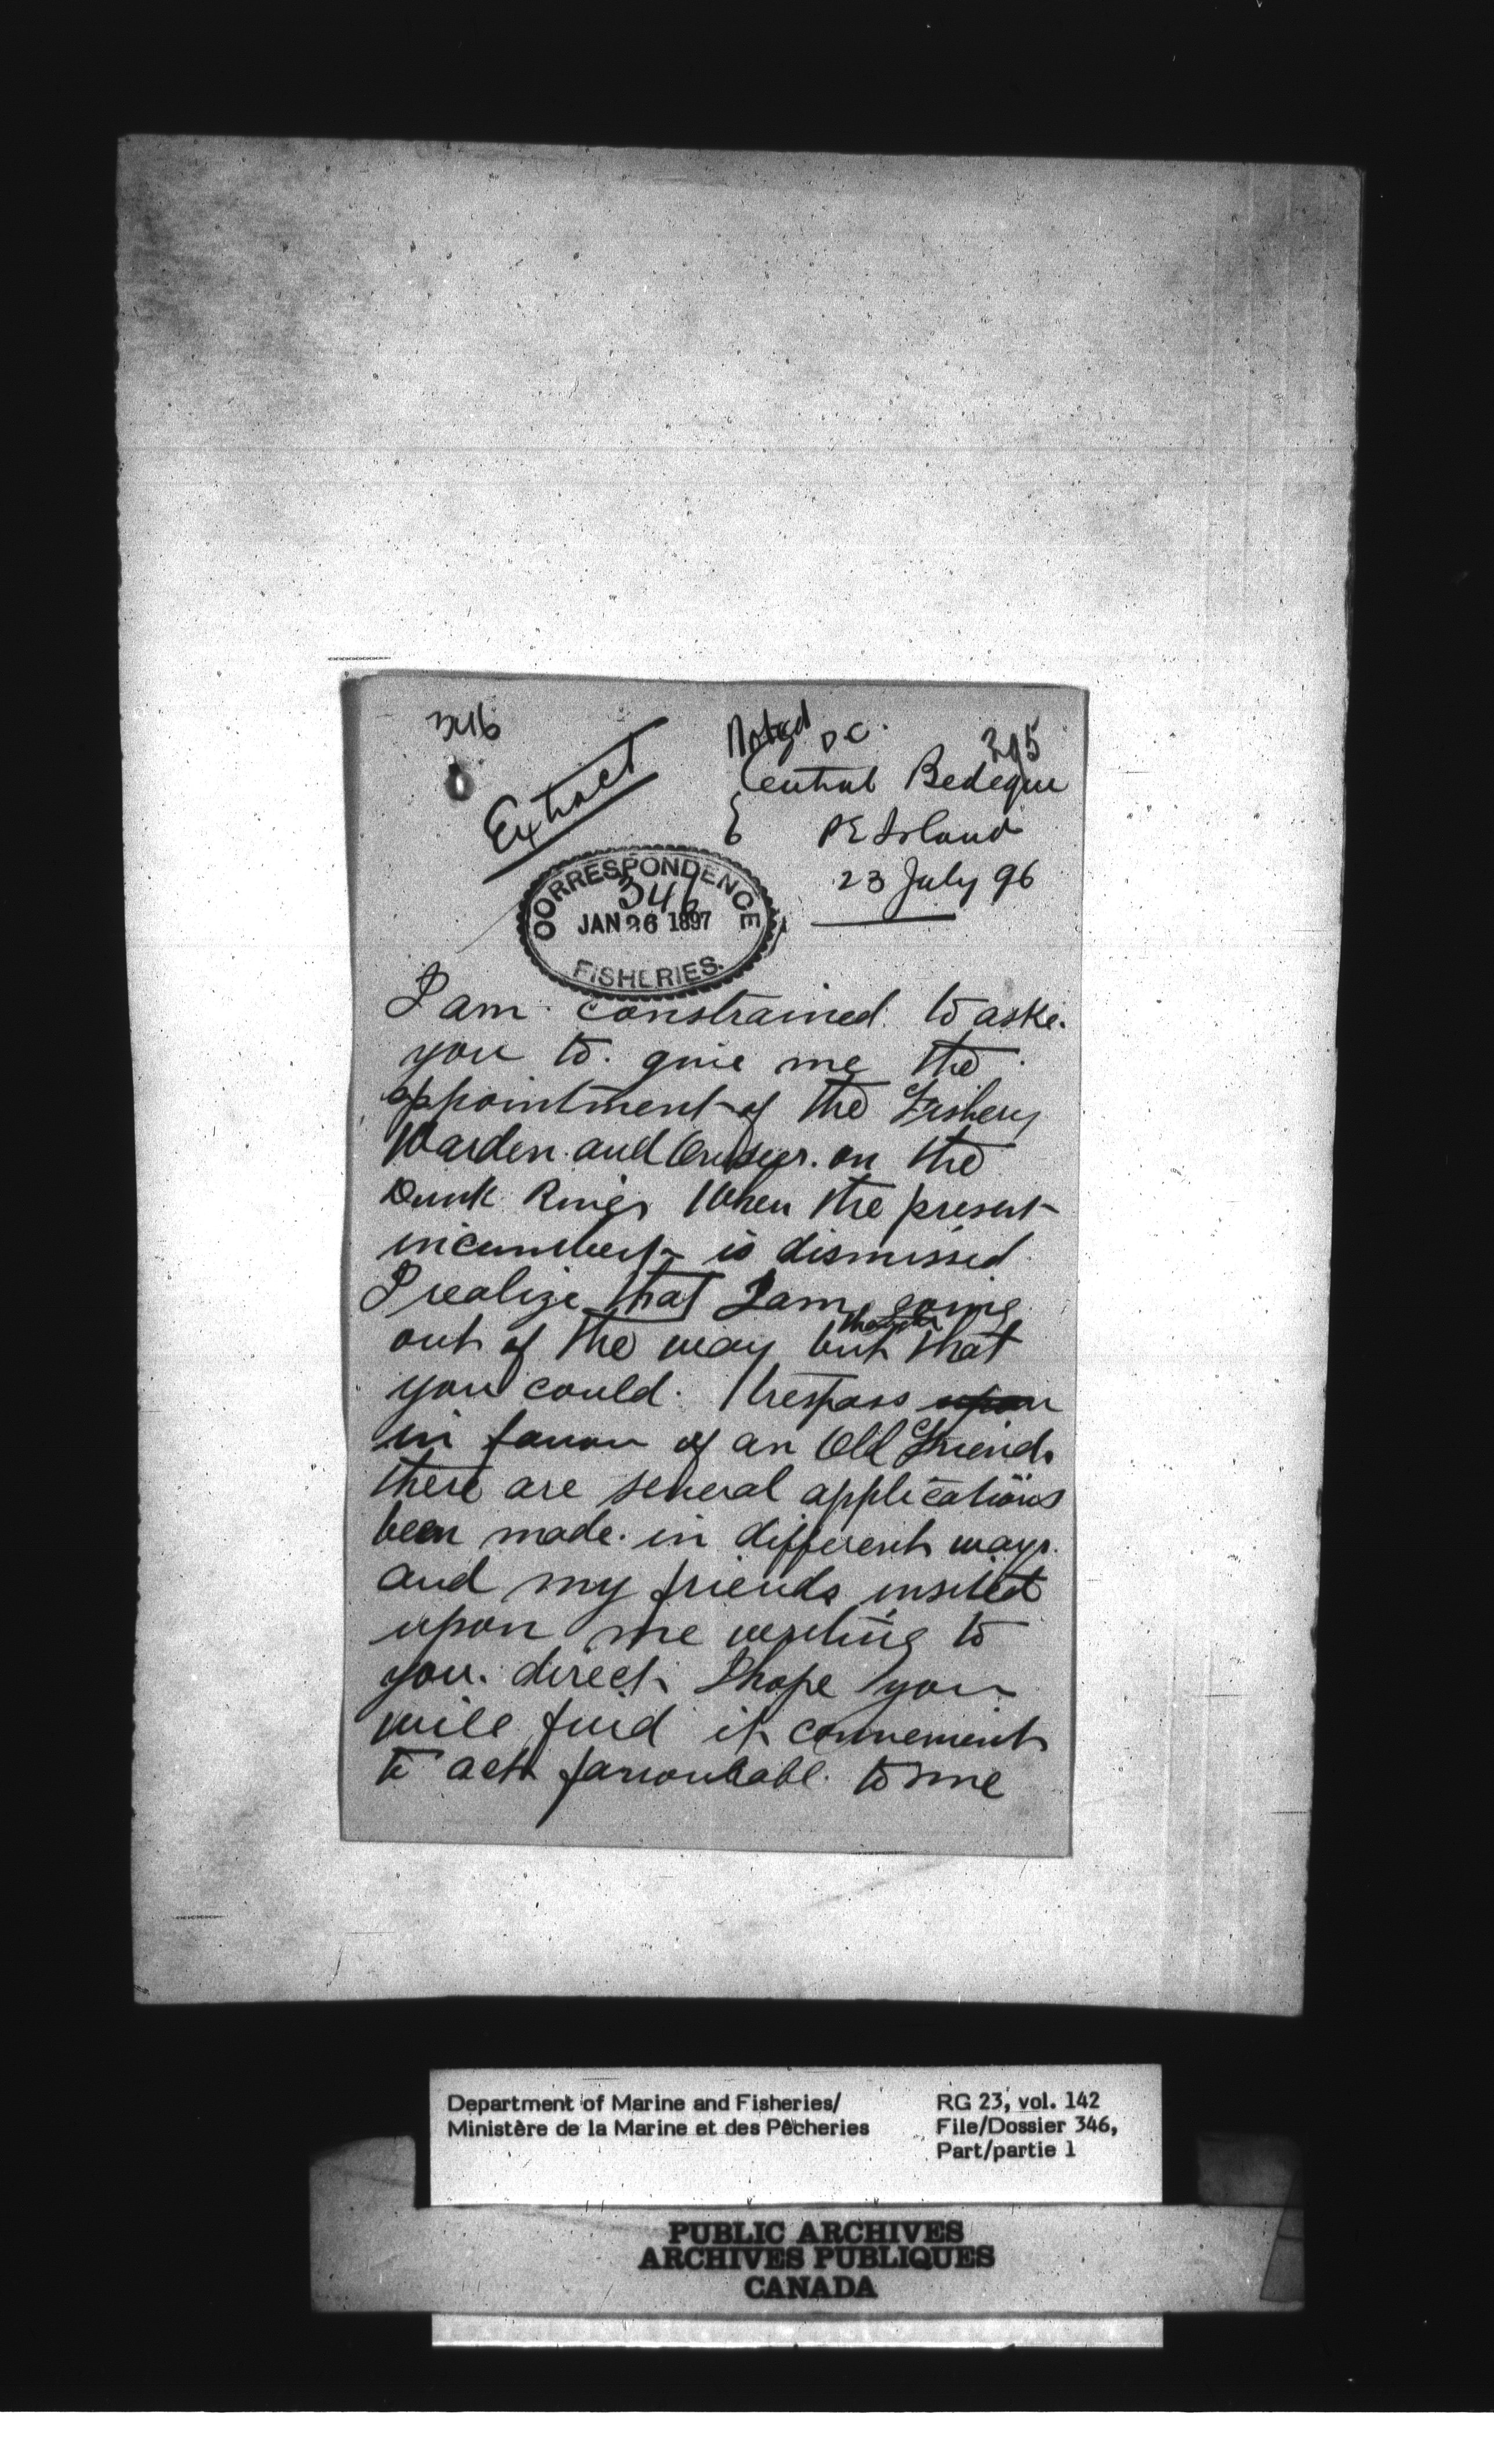 346
Noted
D.C.
Extract
Central Bedeque
PE Island
23 July 96
CORRESPONDENCE
346
JAN 26 1897
FISHERIES.
I am constrained to aske
you to give me the
appointment of the Fishery
Warden and Overseer on the
Dunk River When the present
incumbent is dismissed
I realize that I am going
out of the way but thought that
you could trespass upon
in favour of an Old Friend
there are several applications
been made in different ways
and my friends insisted
upon me writing to
you direct I hope you
will find it convenient
to act favourable to me
Department of Marine and Fisheries/
Ministère de la Marine et des Pêcheries
RG 23, vol. 142
File/Dossier 346,
Part/partie 1
PUBLIC ARCHIVES
ARCHIVES PUBLIQUES
CANADA